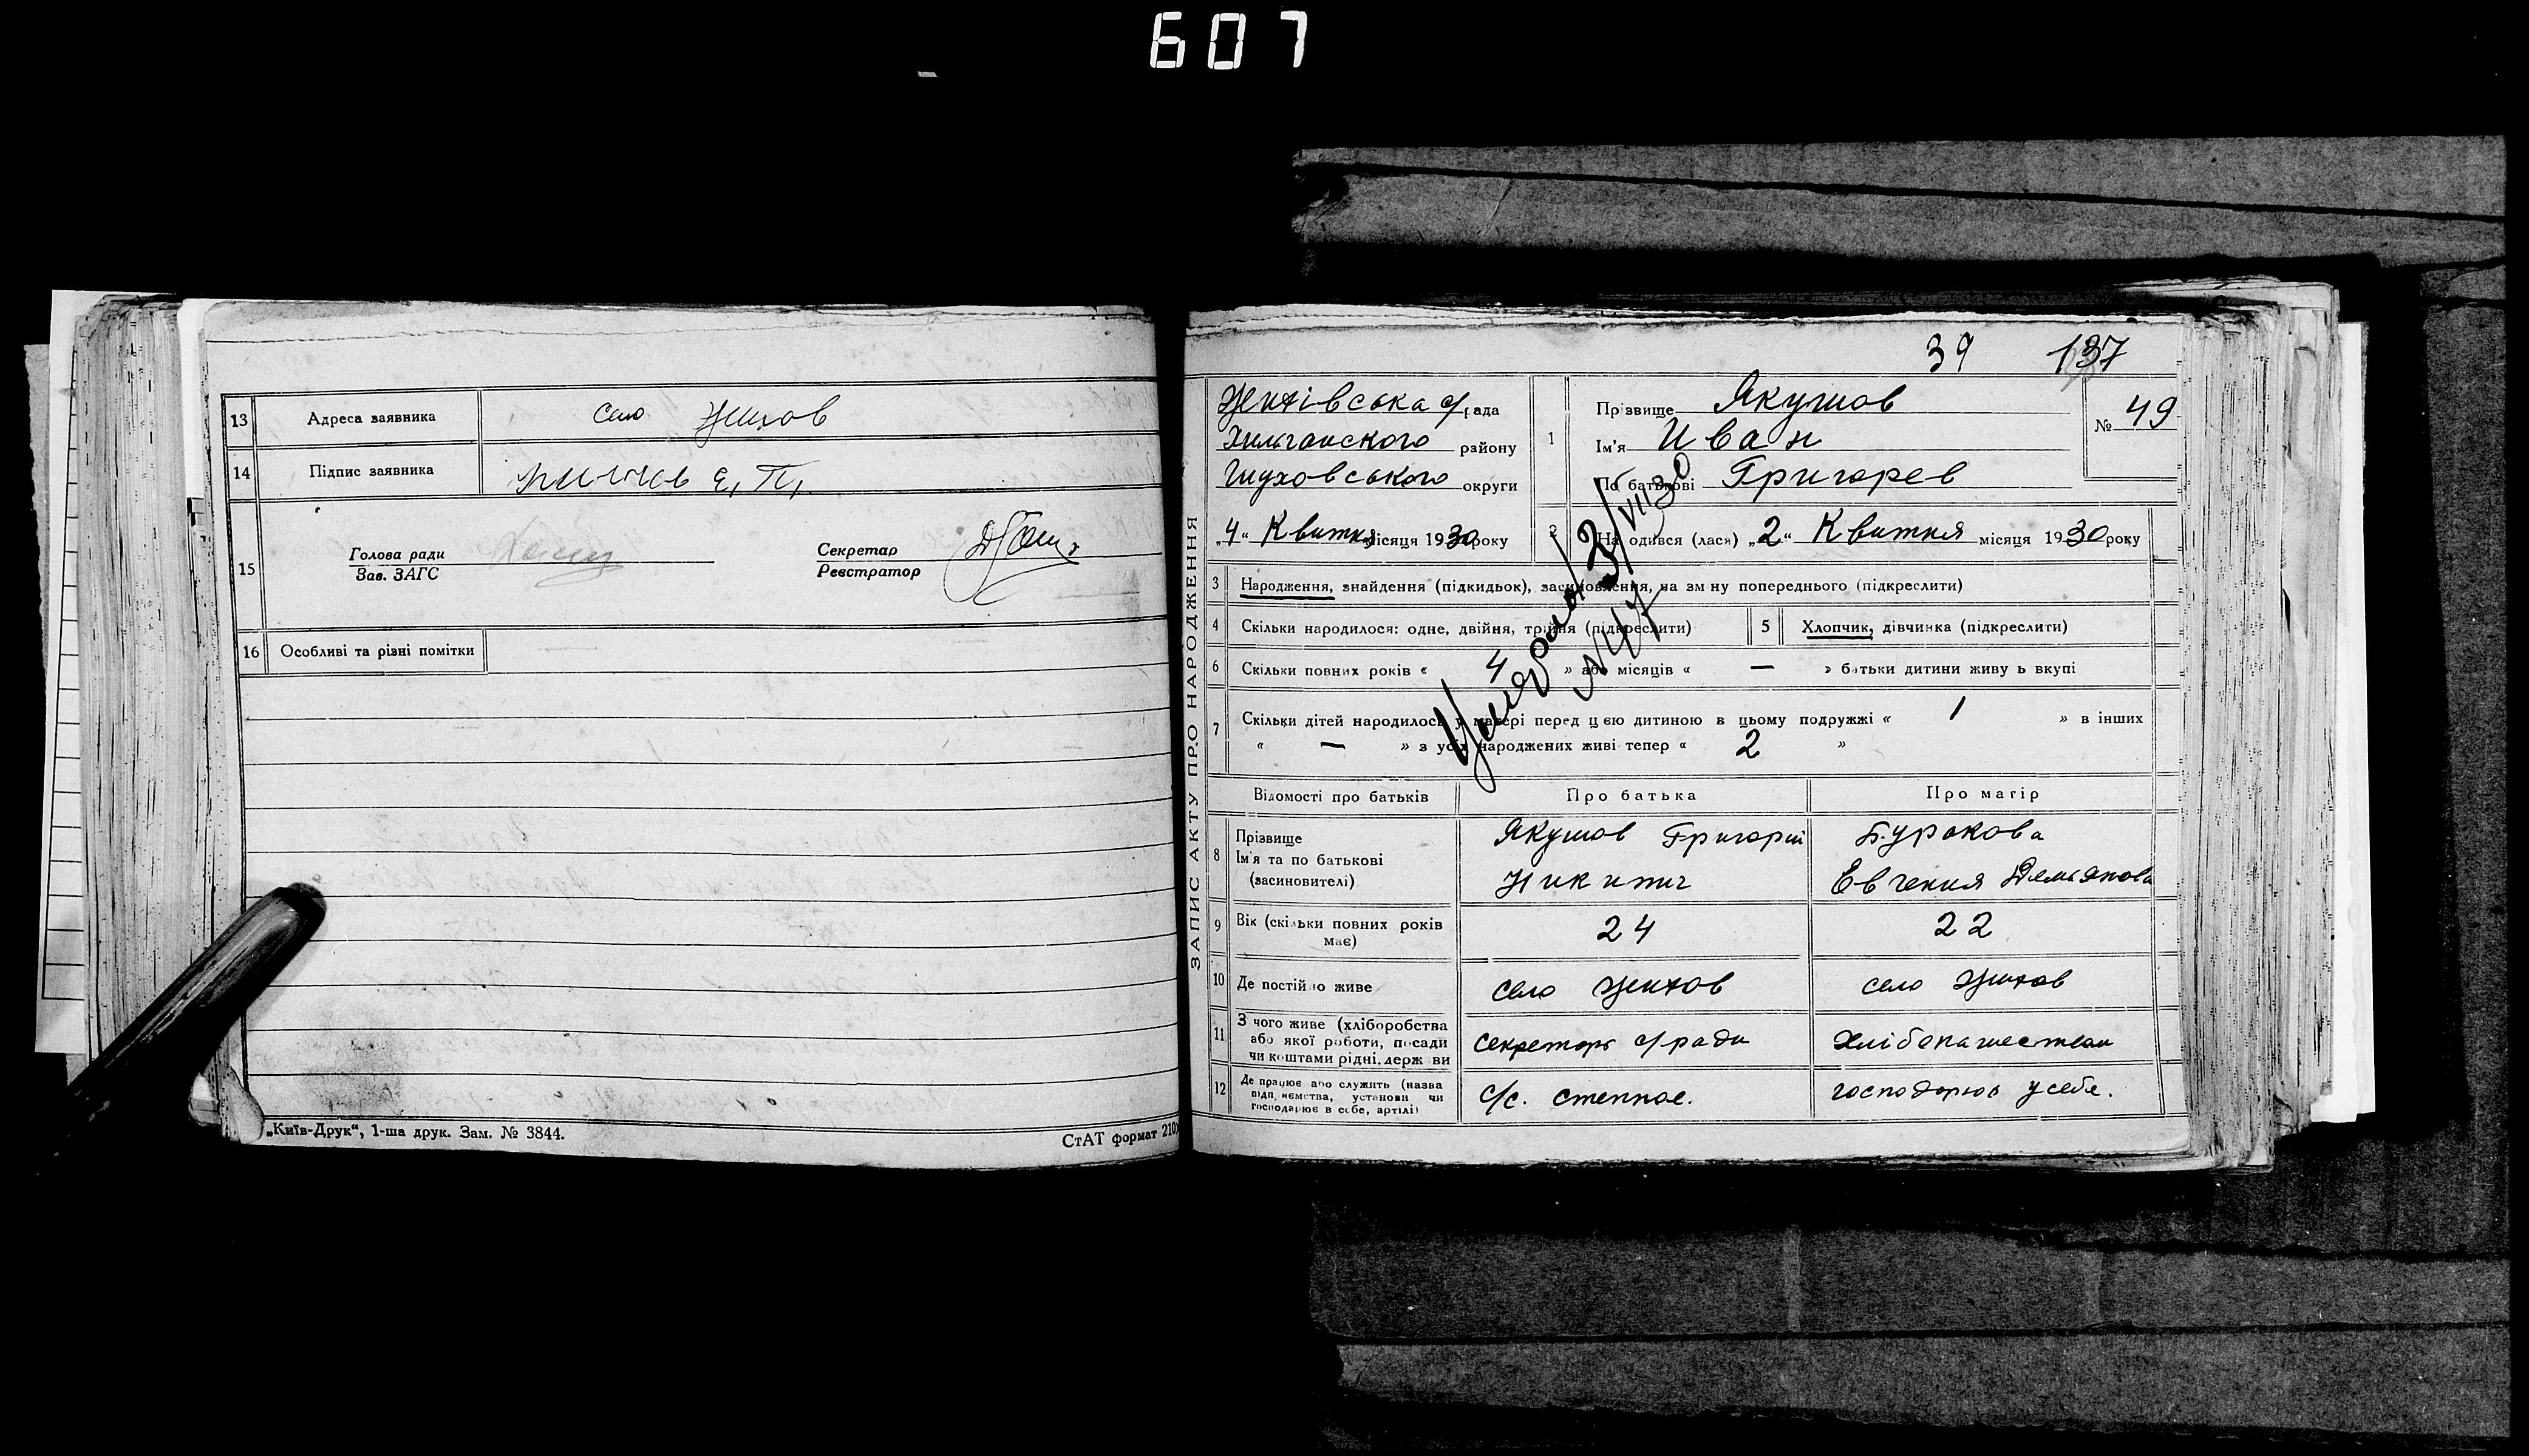 607
13 Адреса заявника село
14 Підпис заявника Е, П,
15 Голова ради
Зав. ЗАГС
Секретар
Реєстратор
16 Особливі та різні помітки
„Київ-Друк“, 1-ша друк. Зам. № 3844.
СтАТ формат 210
ЗАПИС АКТУ ПРО НАРОДЖЕННЯ
39 137
с/рада
району
округи
„4“ Квитня місяця 1930 року
1 Прізвище Якушов
Ім'я Иван
По батькові Григорев
№ 49
2 На одився (лася) „2“ Квитня місяця 1930 року
3 Народження, знайдення (підкидьок), засиновлення, на зм ну попереднього (підкреслити)
4 Скільки народилося: одне, двійня, трійня (підкреслити)
5 Хлопчик, дівчинка (підкреслити)
6 Скільки повних років « 4 » або місяців « — » батьки дитини живу ь вкупі
7 Скільки дітей народилось у матері перед цією дитиною в цьому подружжі « 1 » в інших
« — » з усіх народжених живі тепер « 2 »
Умер 3/VIII 30
№ 47
Відомості про батьків Про батька Про матір
8 Прізвище
Ім'я та по батькові
(засиновителі)
Якушов Григорий
Никитич
Буракова
Евгения Демьянова
9 Вік (скільки повних років
має)
24
22
10 Де постійно живе
село
село
11 З чого живе (хліборобства
або якої роботи, посади
чи коштами рідні, держ ви
секретарь с/ради
12 Де працює або служить (назва
підп, иємства, установи чи
господарює в себе, артілі)
с/с. степное.
господорює у себе.